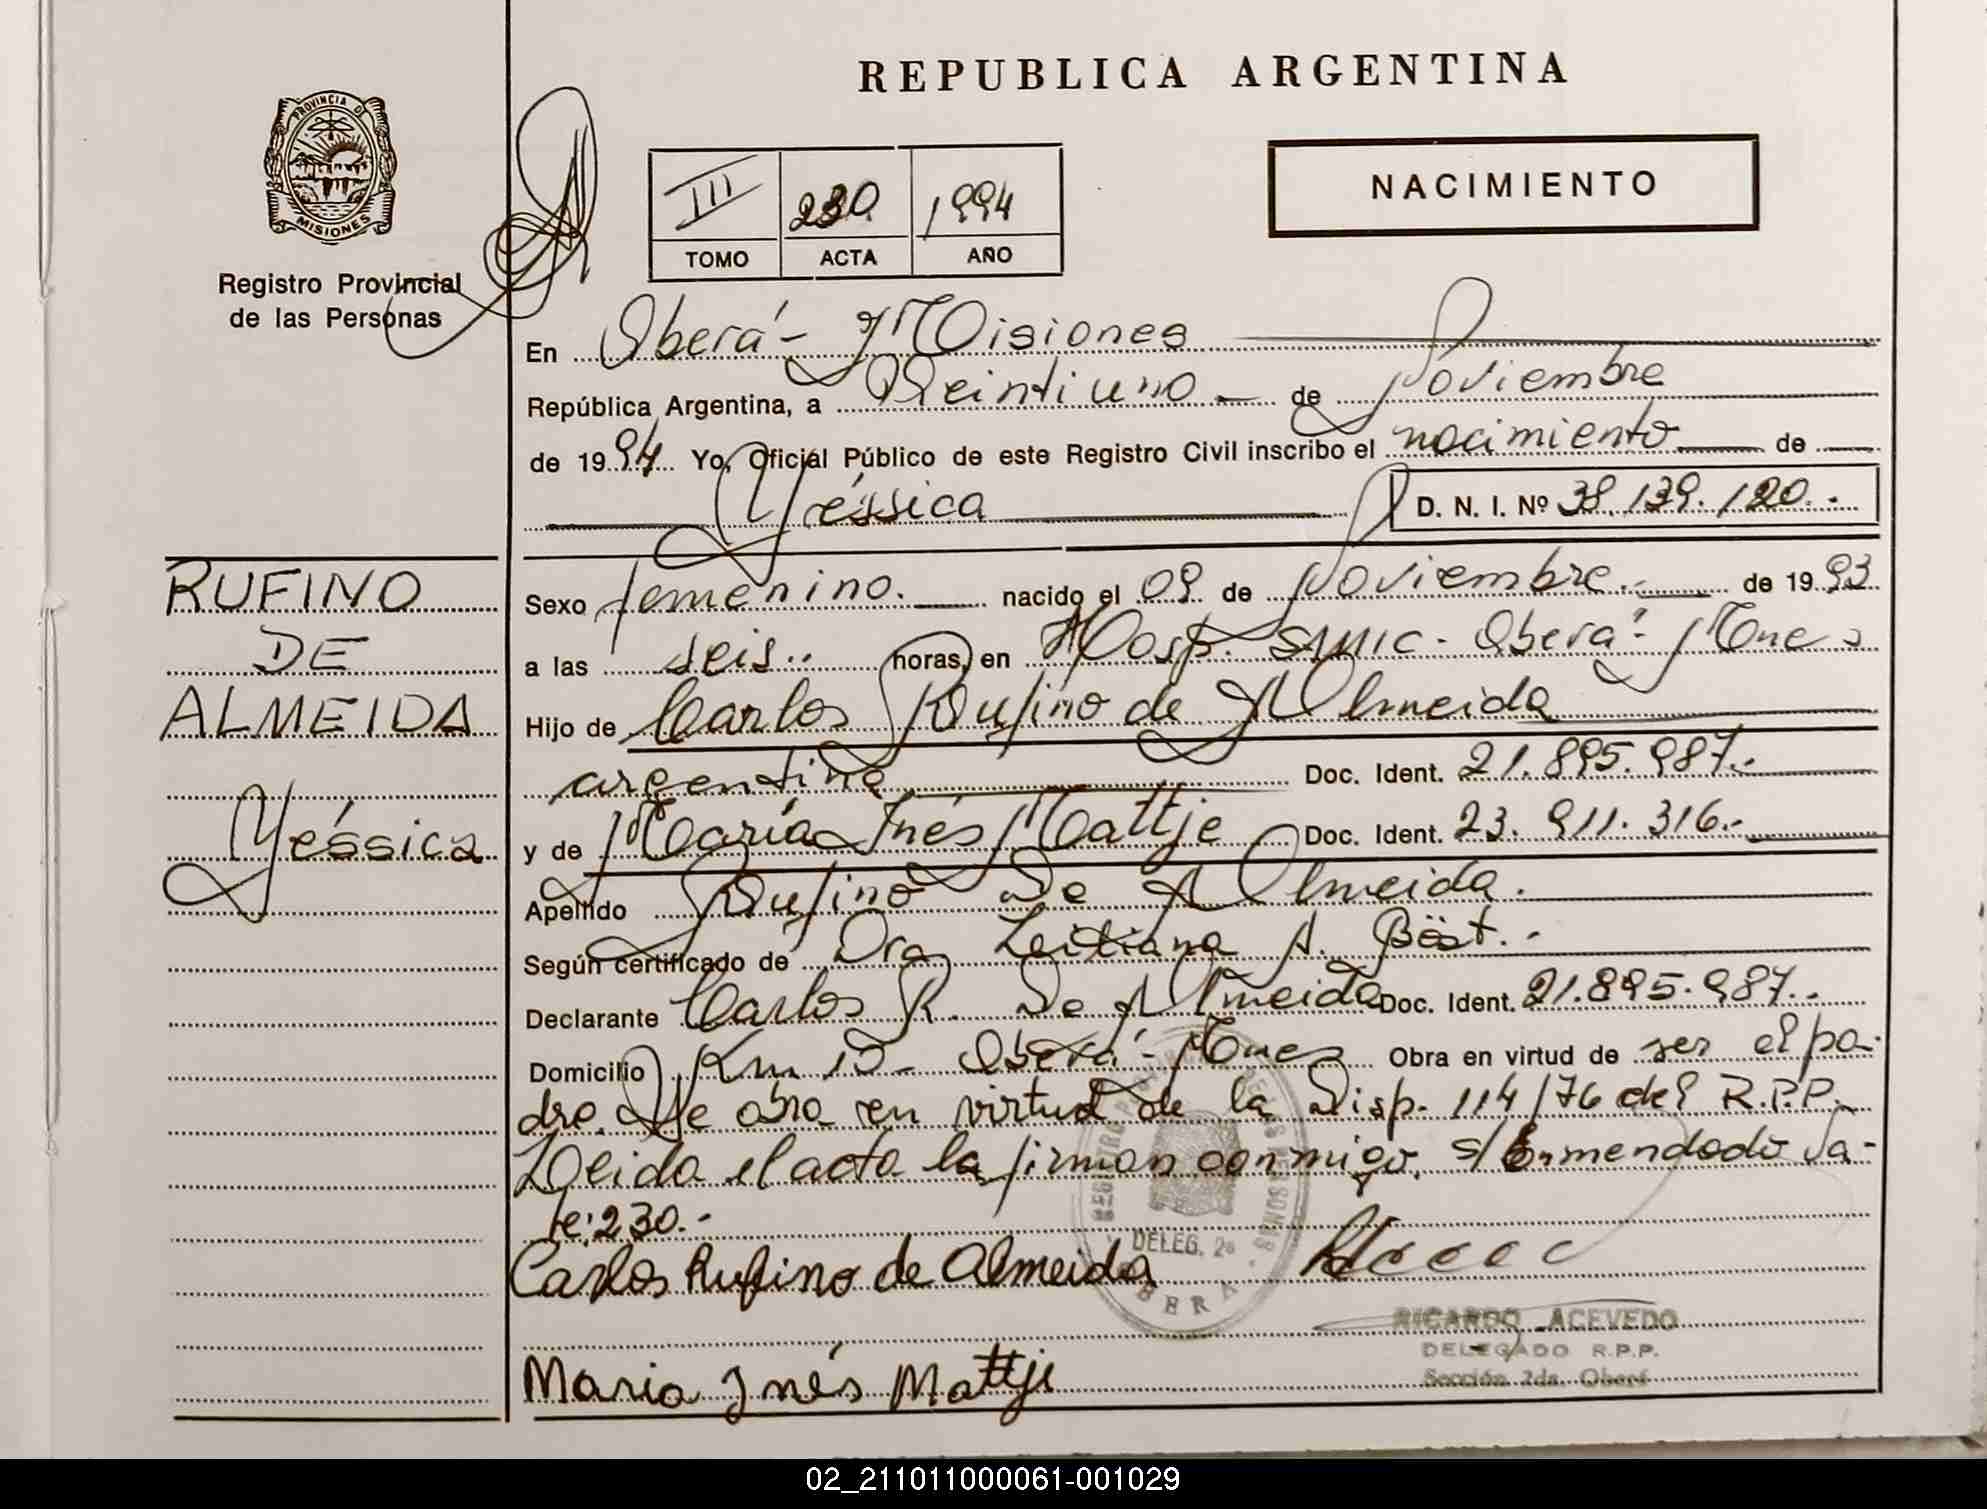 REPUBLICA ARGENTINA
PROVINCIA DE
MISIONES
Registro Provincial
de las Personas
III 230 1994
TOMO ACTA AÑO
NACIMIENTO
En Oberá - Misiones
República Argentina, a Veintiuno de Noviembre
de 1994 Yo, Oficial Público de este Registro Civil inscribo el nacimiento de
Yéssica D. N. I. Nº 38.139.120.-
RUFINO
DE
ALMEIDA
Yéssica
Sexo femenino. nacido el 09 de Noviembre.- de 1993
a las seis.. horas, en Hosp. SAMIC - Oberá - Mnes
Hijo de Carlos Rufino de Almeida
argentina Doc. Ident. 21.895.987.-
y de María Inés Mattje Doc. Ident. 23.911.316.-
Apellido Rufino De Almeida.
Según certificado de Dra A. Böst.-
Declarante Carlos R. De Almeida Doc. Ident. 21.895.987.-
Domicilio Km 13 - Oberá - Mnes Obra en virtud de ser el pa-
dre. Se obra en virtud de la Disp. 114/76 del R.P.P.
Leida el acta la firman conmigo. s/Enmendado Va-
le: 230.-
Carlos Rufino de Almeida
DELEG. 2ª
OBERA
RICARDO ACEVEDO
DELEGADO R.P.P.
Sección 2da. Oberá
Maria Inés Mattje
02_211011000061-001029